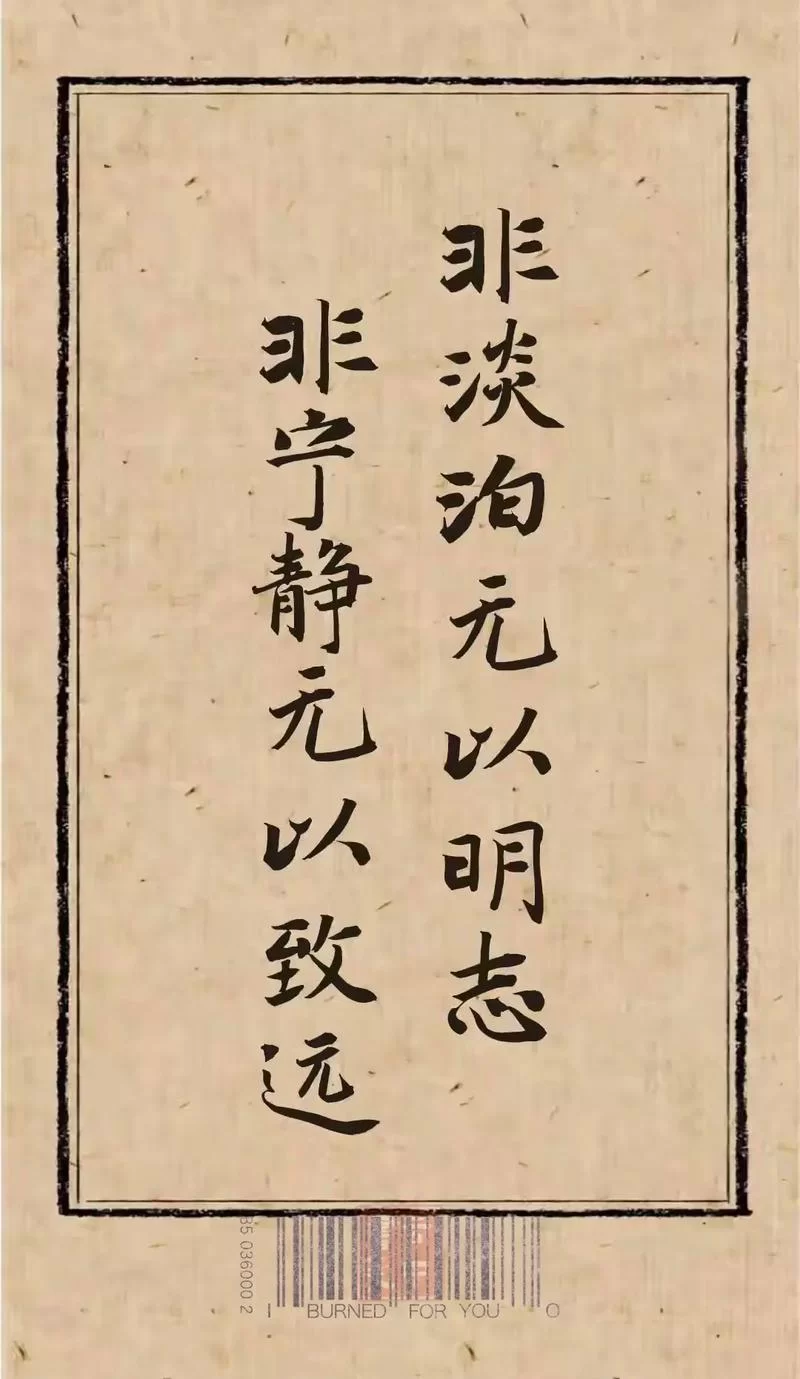 非淡泊无以明志
非宁静无以致远
036000 2
I BURNED FOR YOU O